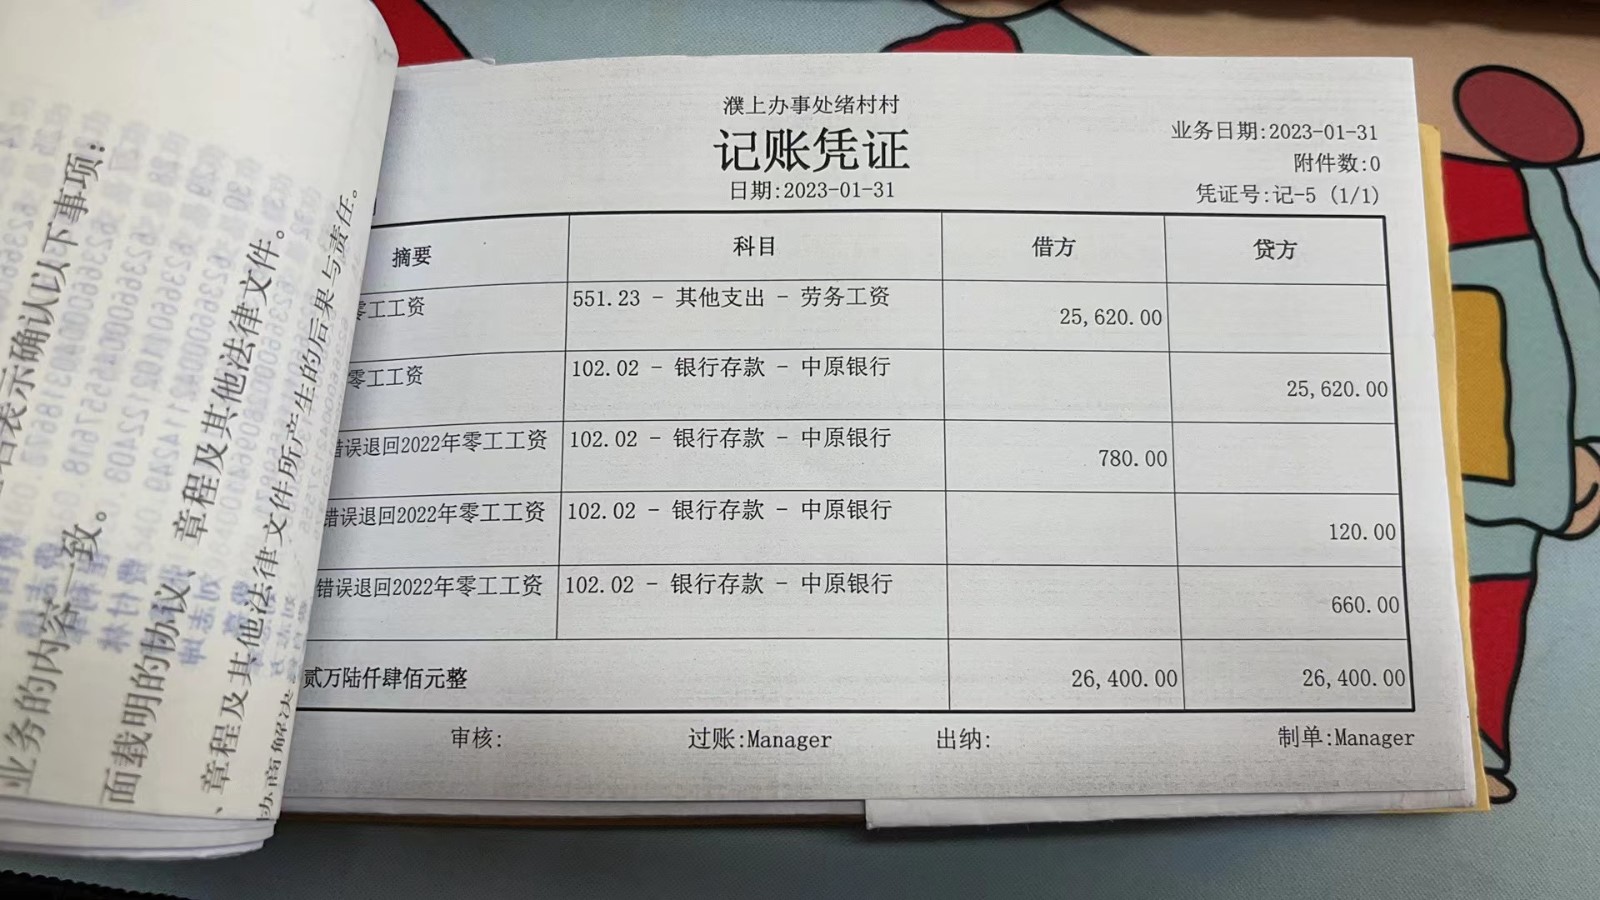 濮上办事处绪村村
记账凭证
日期:2023-01-31
业务日期:2023-01-31
附件数:0
凭证号:记-5 (1/1)
摘要 科目 借方 贷方
零工工资 551.23 - 其他支出 - 劳务工资 25,620.00
零工工资 102.02 - 银行存款 - 中原银行 25,620.00
错误退回2022年零工工资 102.02 - 银行存款 - 中原银行 780.00
错误退回2022年零工工资 102.02 - 银行存款 - 中原银行 120.00
错误退回2022年零工工资 102.02 - 银行存款 - 中原银行 660.00
贰万陆仟肆佰元整 26,400.00 26,400.00
审核: 过账:Manager 出纳: 制单:Manager
名表示确认以下事项:
业务的内容一致。
面载明的协议、章程及其他法律文件。
、章程及其他法律文件所产生的后果与责任。
办商解决